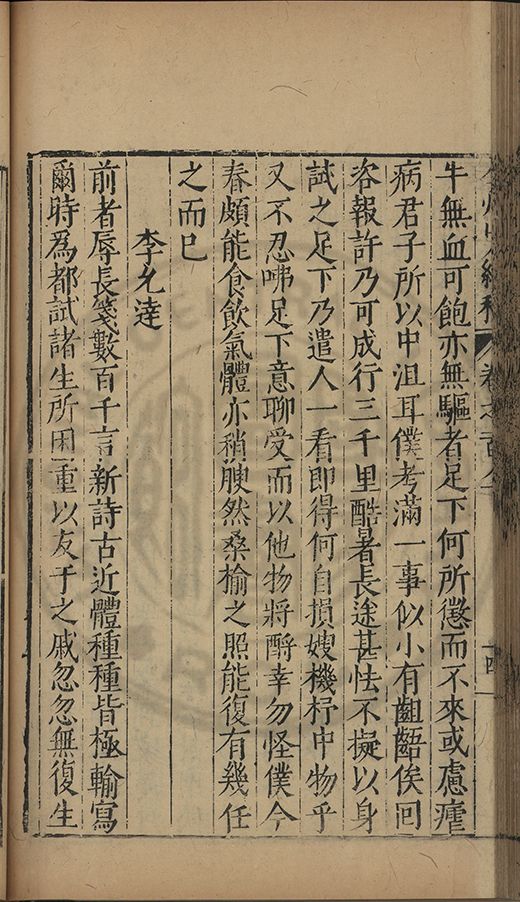 牛無血可飽亦無驅者足下何所懲而不來或慮瘧
病君子所以中沮耳僕考滿一事似小有齟齬俟回
咨報許乃可成行三千里酷暑長途甚怯不擬以身
試之足下乃遣人一看即得何自損嫂機杼中物乎
又不忍咈足下意聊受而以他物將酹幸勿怪僕今
春頗能食飲氣體亦稍腴然桑榆之照能復有幾任
之而已
李允達
前者辱長箋數百千言新詩古近體種種皆極輸寫
爾時爲都試諸生所困重以友于之戚忽忽無復生